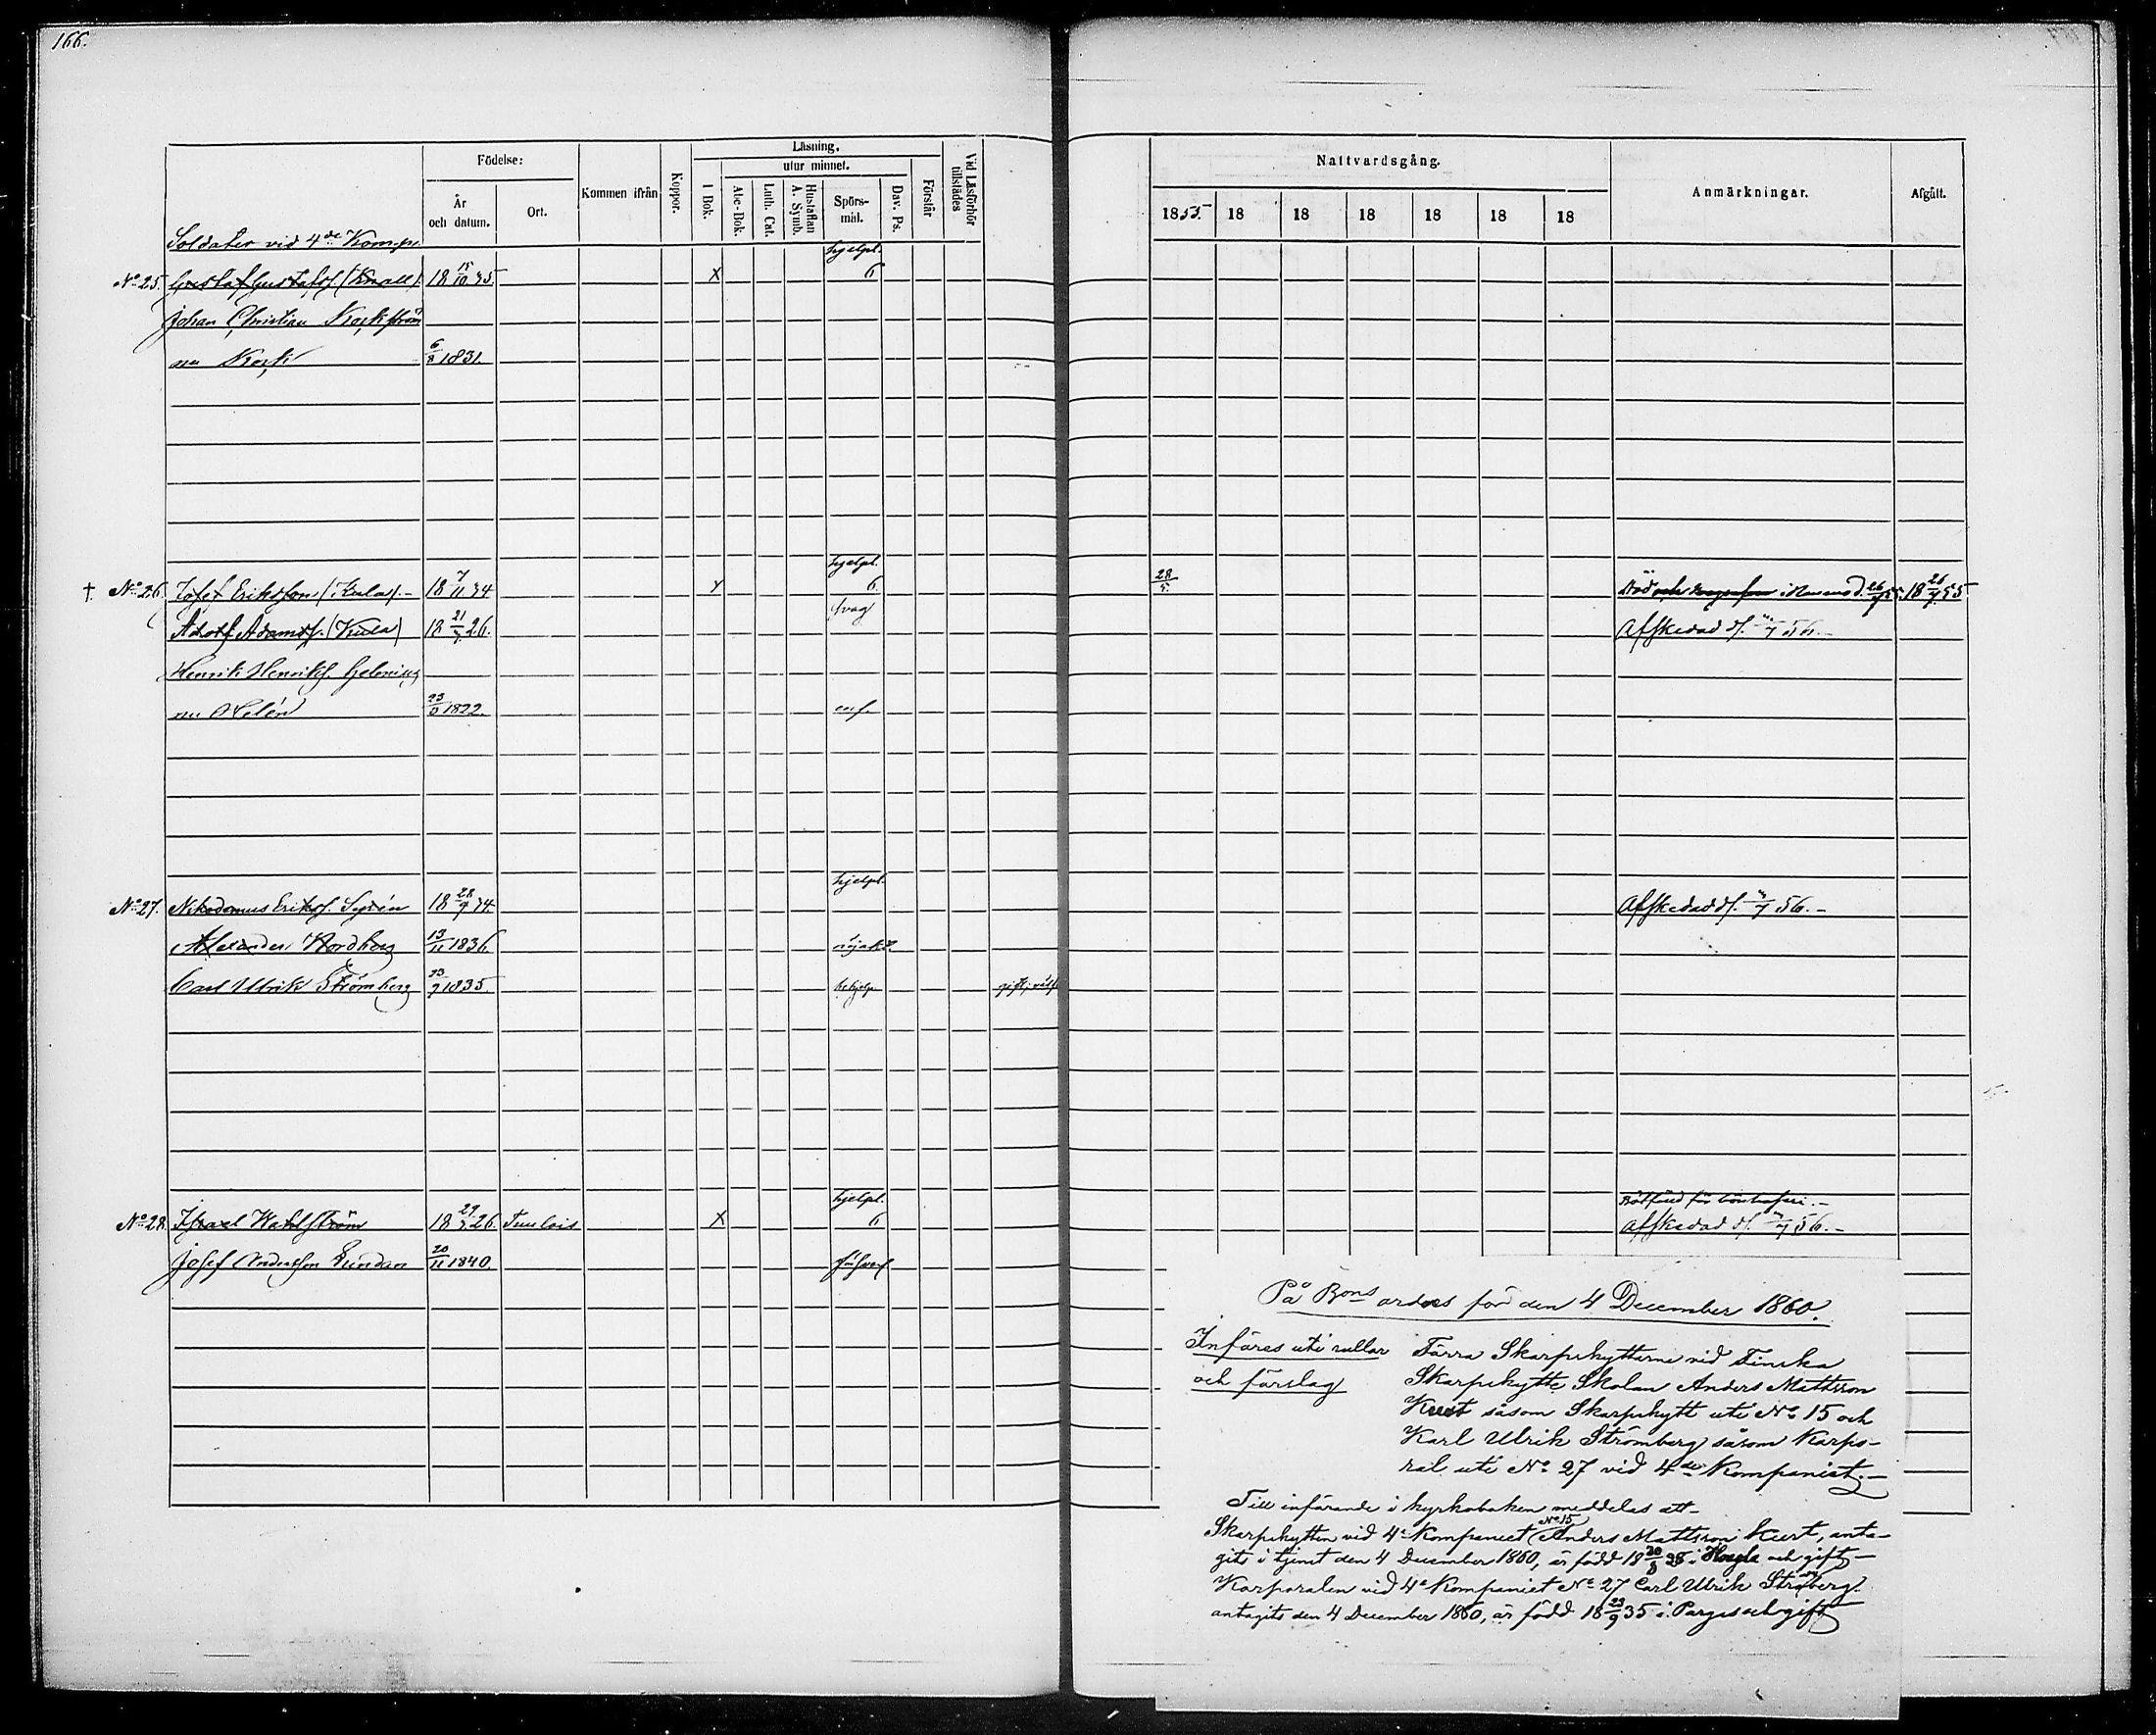 166.
Födelse:
Kommen ifrån
Koppor.
Läsning.
utur minnet.
Förstår
Vid Läsförhör tillstädes
År och datum.
Ort.
I Bok.
Abc-Bok.
Luth. Cat.
Hustaflan A. Symb.
Spörs-mål.
Dav. Ps.
Nattvardsgång.
Anmärkningar.
Afgått.
1855 18 18 18 18 18 18
Soldater vid 4de Komp.
hjelpl.
No 25. Gustaf Gustafss. (Knall) 18 15/10 35. X 6
Johan Christian
nu 6/8 1831.
hjelpl.
†. No 26. Josef Eriksson (Kula).- 18 7/11 34 X 6. 28/5. Död 26/7 55. 18 26/7 55.
svag
Adolf Adamss. (Kula) 18 21/7 26. Afskedad d. 56.-
Henrik Henrikss.
nu 23/8 1822.
hjelpl.
No 27. Nikodemus Erikss. Syrén 18 28/9 34. Afskedad d. 56.-
Alexander Nordberg 13/11 1836.
Carl Ulrik Strömberg 23/9 1835. behjelp. gift;
hjelpl.
No 28. Israel Wahlström 18 29/3 26. Tenlois X 6 Afskedad d. 56.-
Josef Andersson 20/11 1840.
På Bons ordres för den 4 December 1860.
Införes uti rullor och förslag
Förra Skarpskyttarne vid Finska
Skarpskytte Skolan Anders Mattsson
Kust såsom Skarpskytt uti No 15 och
Karl Ulrik Strömberg såsom Korpo-
ral uti No 27 vid 4de Kompaniet.-
Till införande i kyrkoboken meddelas att-
Skarpskytten vid 4e Kompaniet No 15 Anders Mattsson Kust, anta-
gits i tjenst den 4 December 1860, är född 18 20/8 38 i och gift-
Korporalen vid 4e Kompaniet No 27 Carl Ulrik Strömberg.
antagits den 4 December 1860, är född 18 23/9 35 i Pargas och gift